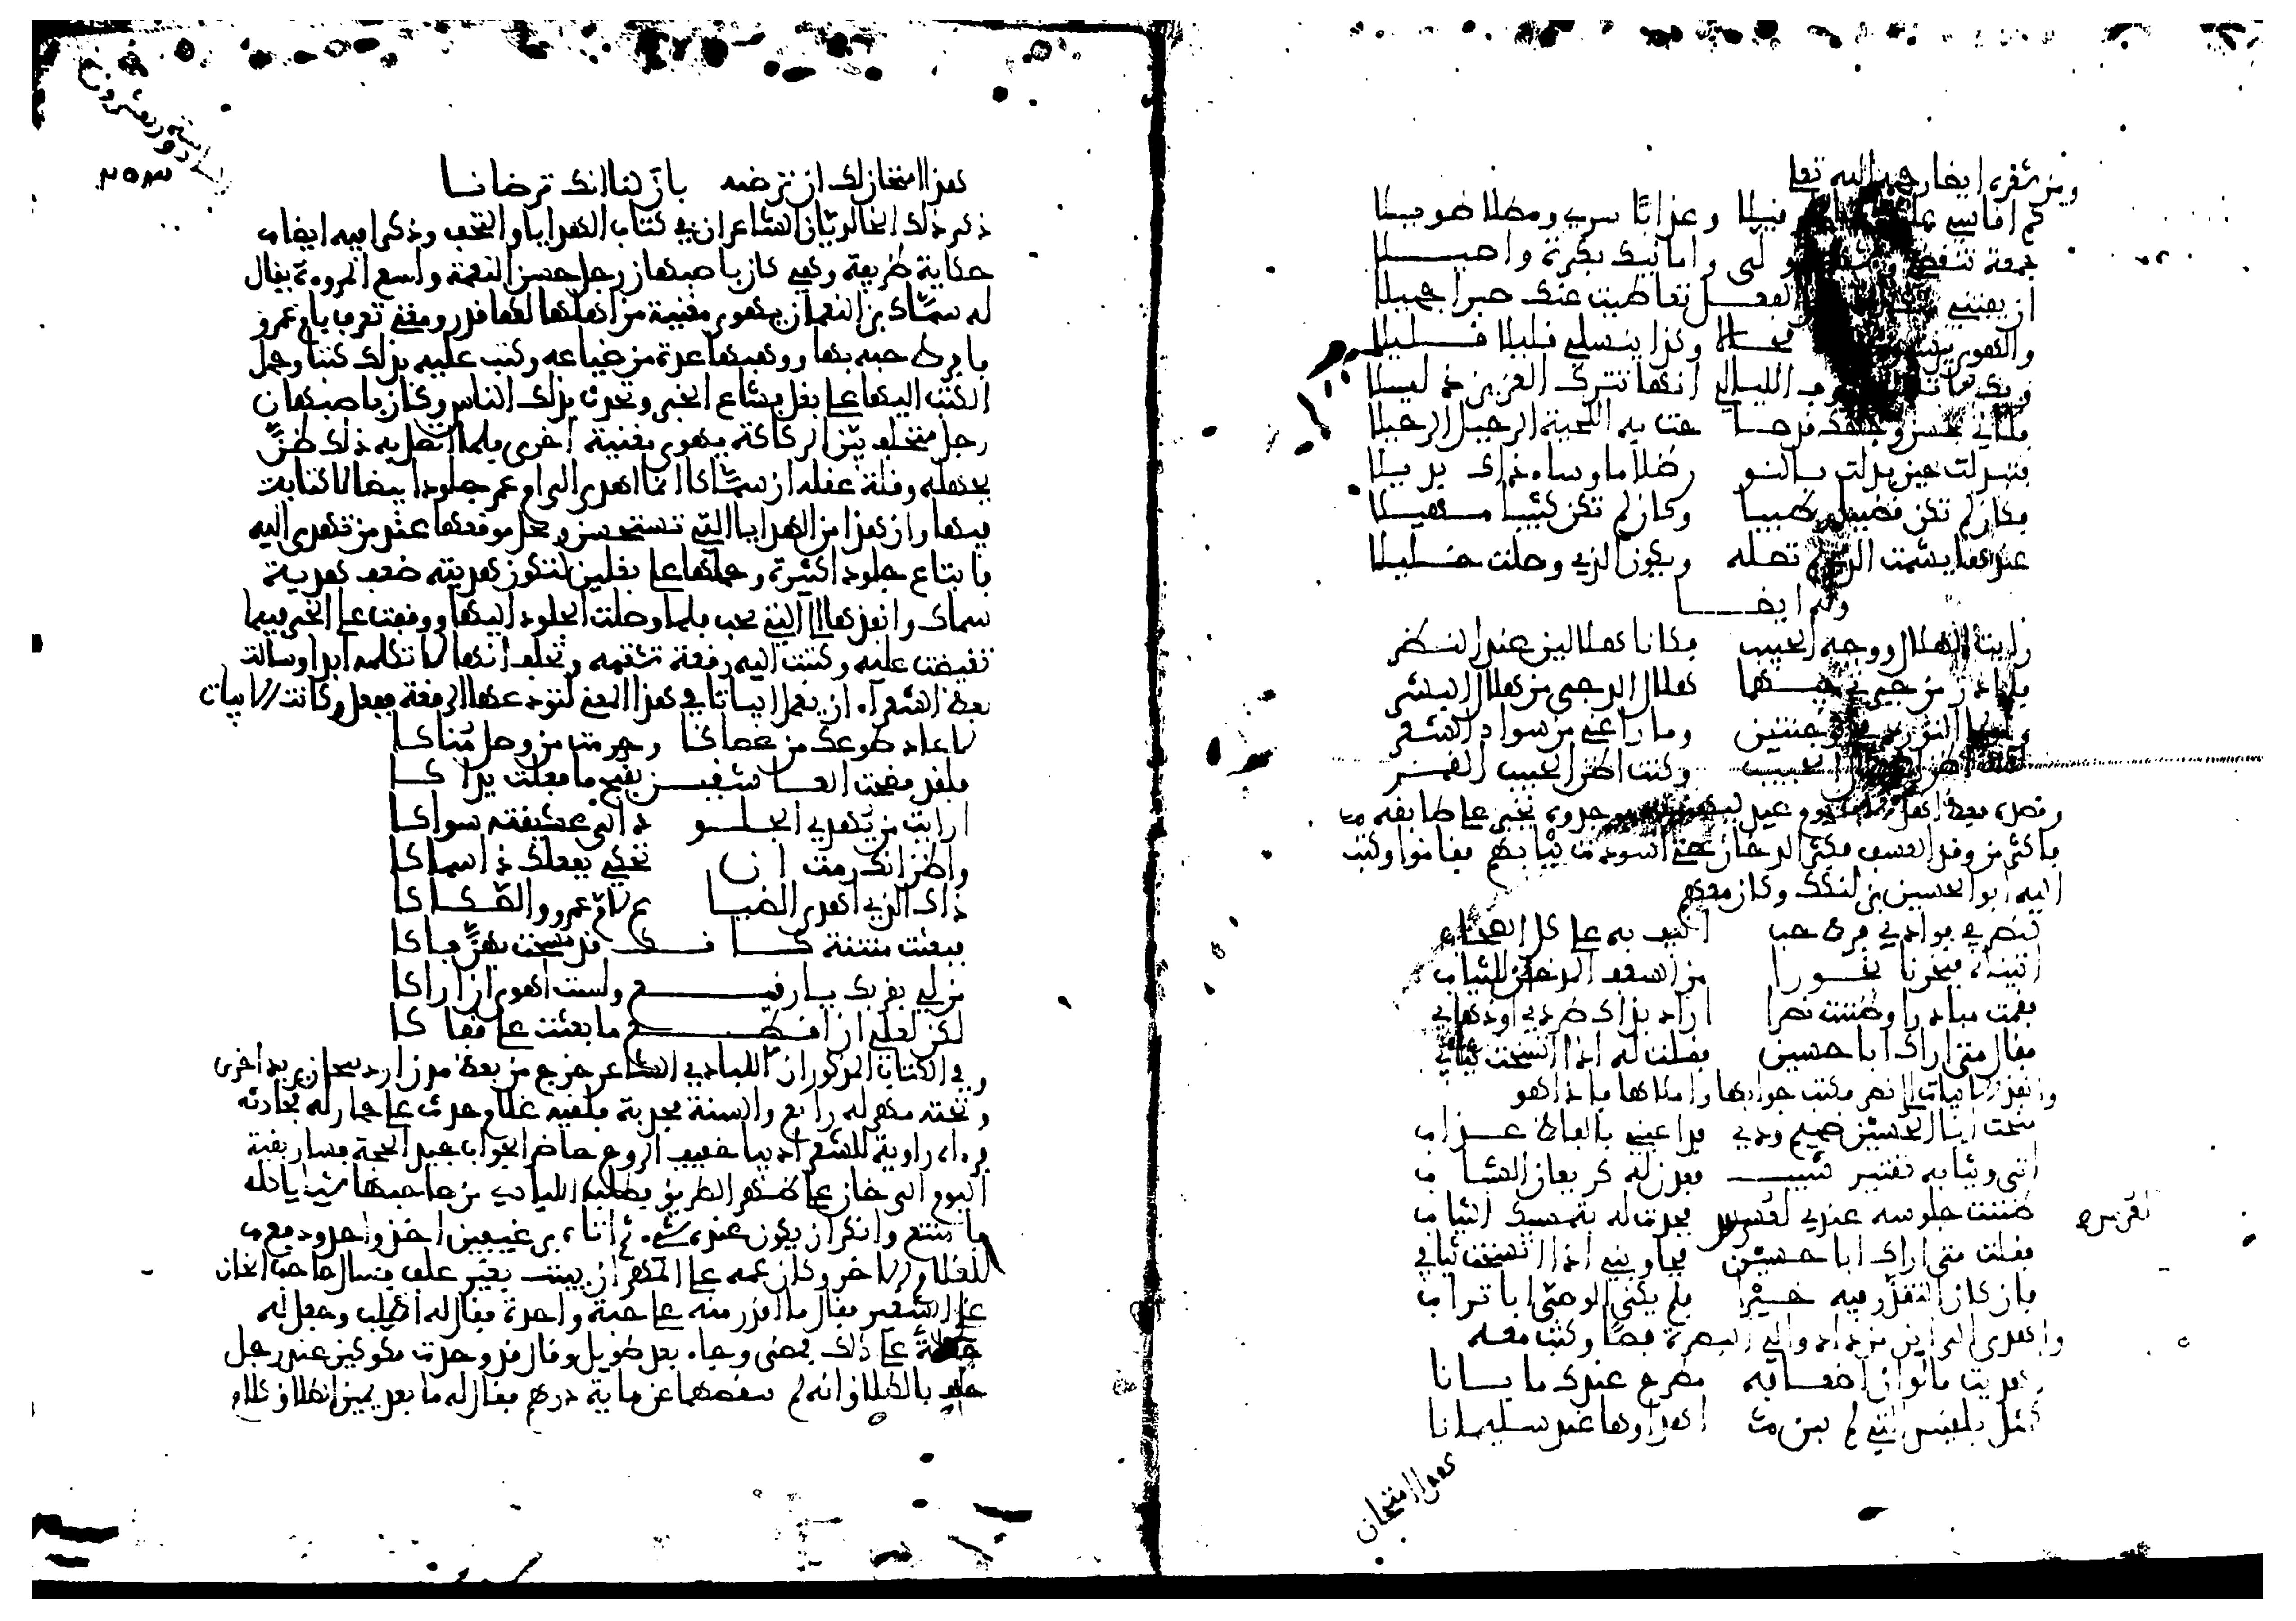 ومن شعره ايضا رحمه الله تعلى
كم افاسى قتيلا وعذابا سرى ومطلا طويلا
جمعة تنقضى ولى وامانيك بكرة واصيلا
ان يفتنى تعاطيت عنك صبرا جميلا
والهوى محالا وكذا ينسلى قليلا قليلا
الليالى انها تترك العزيز ذليلا
فكانى بحسن وجهك قد صا حت به اللحية الرحيل الرحيلا
فتبدلت حين بدلت بالنو ر ظلاما وساء ذاك بديلا
فكان لم تكن قضيبا رطيبا وكان لم تكن كثيبا مهيلا
عندها يشمت الذى لم تصله ويكون الذى وصلت خليلا
وله ايضا
رايت الهلال ووجه الحبيب فكانا هلالين عند النظر
فلم ادر من حيرتى فيهما هلال الدجى من هلال البشر
ولولا التورد فى الوجنتين وما راعنى من سواد الشعر
لكنت اظن الهلال الحبيب وكنت اظن الحبيب القمر
وقصده بعض يوم عيد فوجدوه يخبز على طابقه
فاكثر من وقد السعف فكثر الدخان حتى اسودت ثيابهم فقاموا وكتب
اليه ابو الحسين بن لنكك وكان معهم
لنصر فى فوادى فرط حب انيف به على كل الصحاب
اتيناه فبخرنا بخورا من السعف المدخن للثياب
فقمت مبادرا وظننت نصرا اراد بذاك طردى او ذهابى
فقال متى اراك ابا حسين فقلت له اذا اتسخت ثيابى
وانفذ الابيات الى نصر فكتب جوابها واملاها فاذا هو
منحت ابا الحسين صميم ودى فداعبنى بالفاظ عذاب
اتى وثيابه كقتير شيب فعدن له كريعان الشباب
ظننت جلوسه عندى لعرس فجدت له بتمسيك الثياب
فقلت متى اراك ابا حسين فجاوبنى اذا اتسخت ثيابى
فان كان التقزز فيه خيرا فلم يكنى الوصى ابا تراب
واهدى الى ابن يزداد والى البصرة فصا وكتب معه
اهديت مالو ان اضعافه مطرح عندك ما بانا
كمثل بلقيس التى لم يبن اهداوها عند سليمانا
هذا امتحان
هذا امتحان لك ان ترضه بان لنا انك ترضانا
ذكر ذلك الخالديان الشاعران فى كتاب الهدايا والتحف وذكرا فيه ايضا
حكاية طريفة وهى كان باصبهان رجل حسن النعمة واسع المروءة يقال
له سماك بن النعمان يهوى مغنية من اهلها لها قدر ومعنى تعرف بام عمرو
فافرط حبه بها ووهبها عدة من ضياعه وكتب عليه بذلك كتبا وحمل
الكتب اليها على بغل فشاع الخبر وتحدث بذلك الناس وكان باصبهان
رجل متخلف بين الركاكة يهوى بغنية اخرى فلما اتصل به ذلك ظن
بجهله وقلة عقله ان سماكا انما اهدى الى ام عمر جلودا بيضا لا كتابة
فيها وان هذا من الهدايا التى تستحسن ويجل موقعها عند من تهدى اليه
فابتاع جلودا كثيرة وحملها على بغلين لتكون هديته ضعف هدية
سماك وانفذها الى التى يحب فلما وصلت الجلود اليها ووقفت على الخبر فيها
تغيضت عليه وكتبت اليه رقعة تشتمه وتحلف انها لا تكلمه ابدا وسالت
بعض الشعراء ان يعمل ابياتا فى هذا المعنى لتودعها الرقعة ففعل وكانت الابيات
لا عاد طوعك من عصاكا وحرمت من وصل مناكا
فلقد فضحت العاشقين بقبح ما فعلت يداكا
ارايت من يهدى الجلو د الى عشيقته سواكا
واظن انك رمت ان تحكى بفعلك ذا سماكا
ذاك الذى اهدى الضيا ع لام عمرو والصكاكا
فبعثت منتنة كا نك قد مسحت بهن فاكا
من لى بقربك يا رقيع ولست اهوى ان اراكا
لكن لعلى ان اقطع ما بعثت على قفاكا
وفى الكتاب المذكور ان اللبادى الشاعر خرج من بعض مدن اذربيجان يريد اخرى
وتحته مهر له رايع والسنة مجدبة فلقيه غلام حدث على حمار له فحادثه
فرءاه راوية للشعر اديبا خفيف الروح حاضر الجواب جيد الحجة فسار بقية
اليوم الى خان على ظهر الطريق فطلب اللبادى من صاحبها شيئا ياكله
فامتنع وانكر ان يكون عنده شىء ثم اتاه برغيفين اخذ واحدا ودفع
للغلام الاخر وكان غمه على المهر ان يبيت بغير علف فسال صاحب الخان
عن الشعير فقال ما اقدر منه على حبة واحدة فقال له اطلب وجعل له
جعالة على ذلك فمضى وجاء بعد طويل وقال قد وجدت مكوكين عند رجل
حلف بالطلاق انه لم ينقصهما عن ماية درهم فقال له ما بعد يمين الطلاق كلام